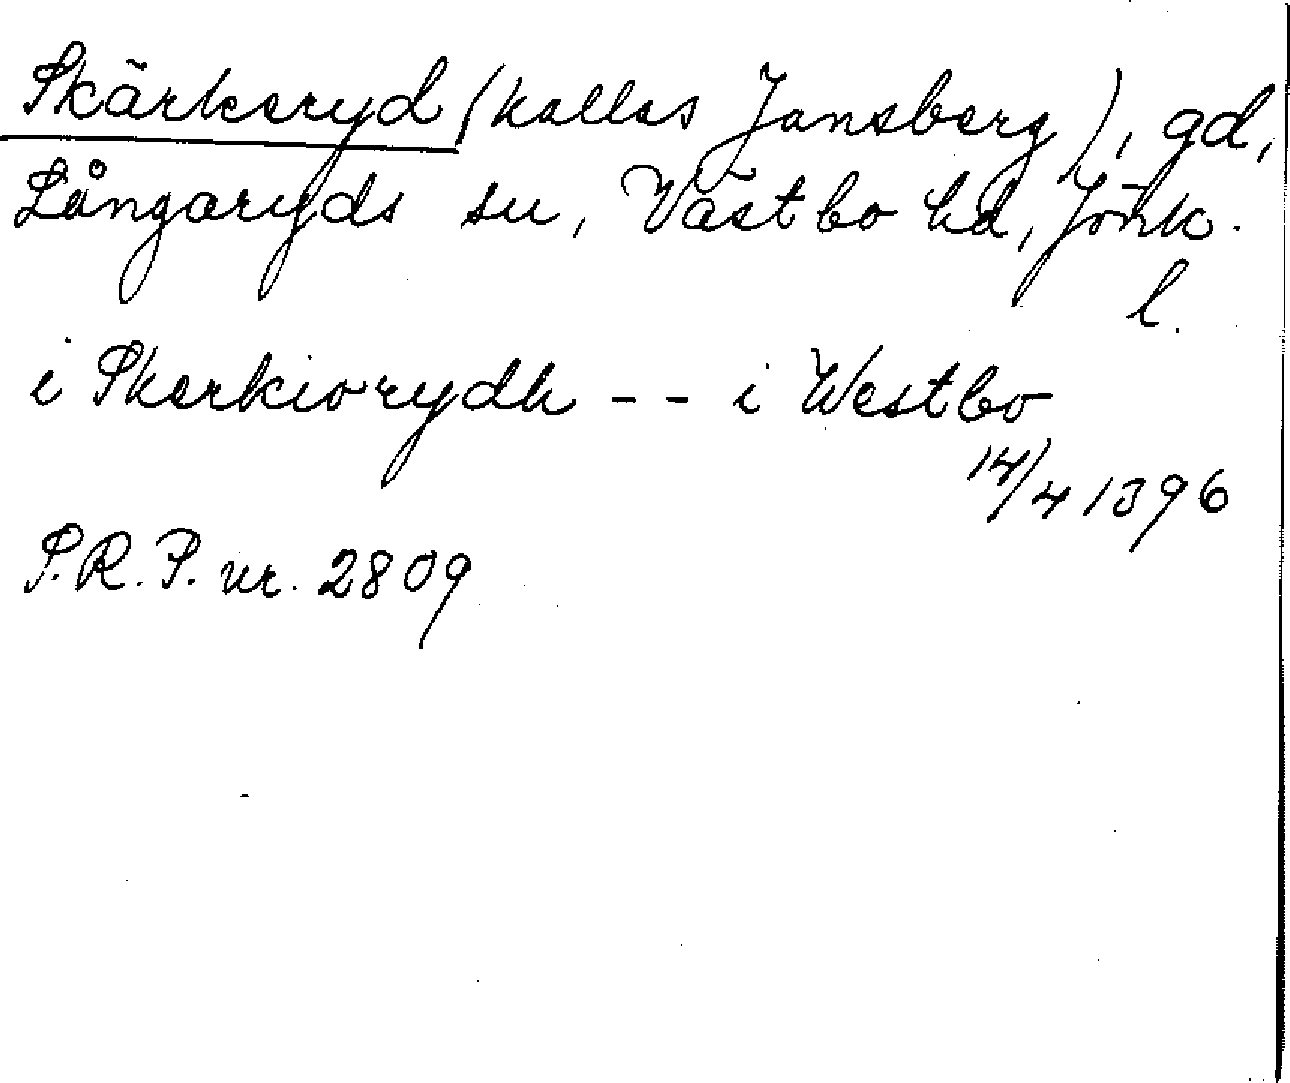 Skärkeryd (kallas Jansberg), gd,
Långaryds sn, Västbo hd, Jönk.
l.
i Skerkiorydh - - i Westbo
14/4 1396
S.R.P. nr. 2809